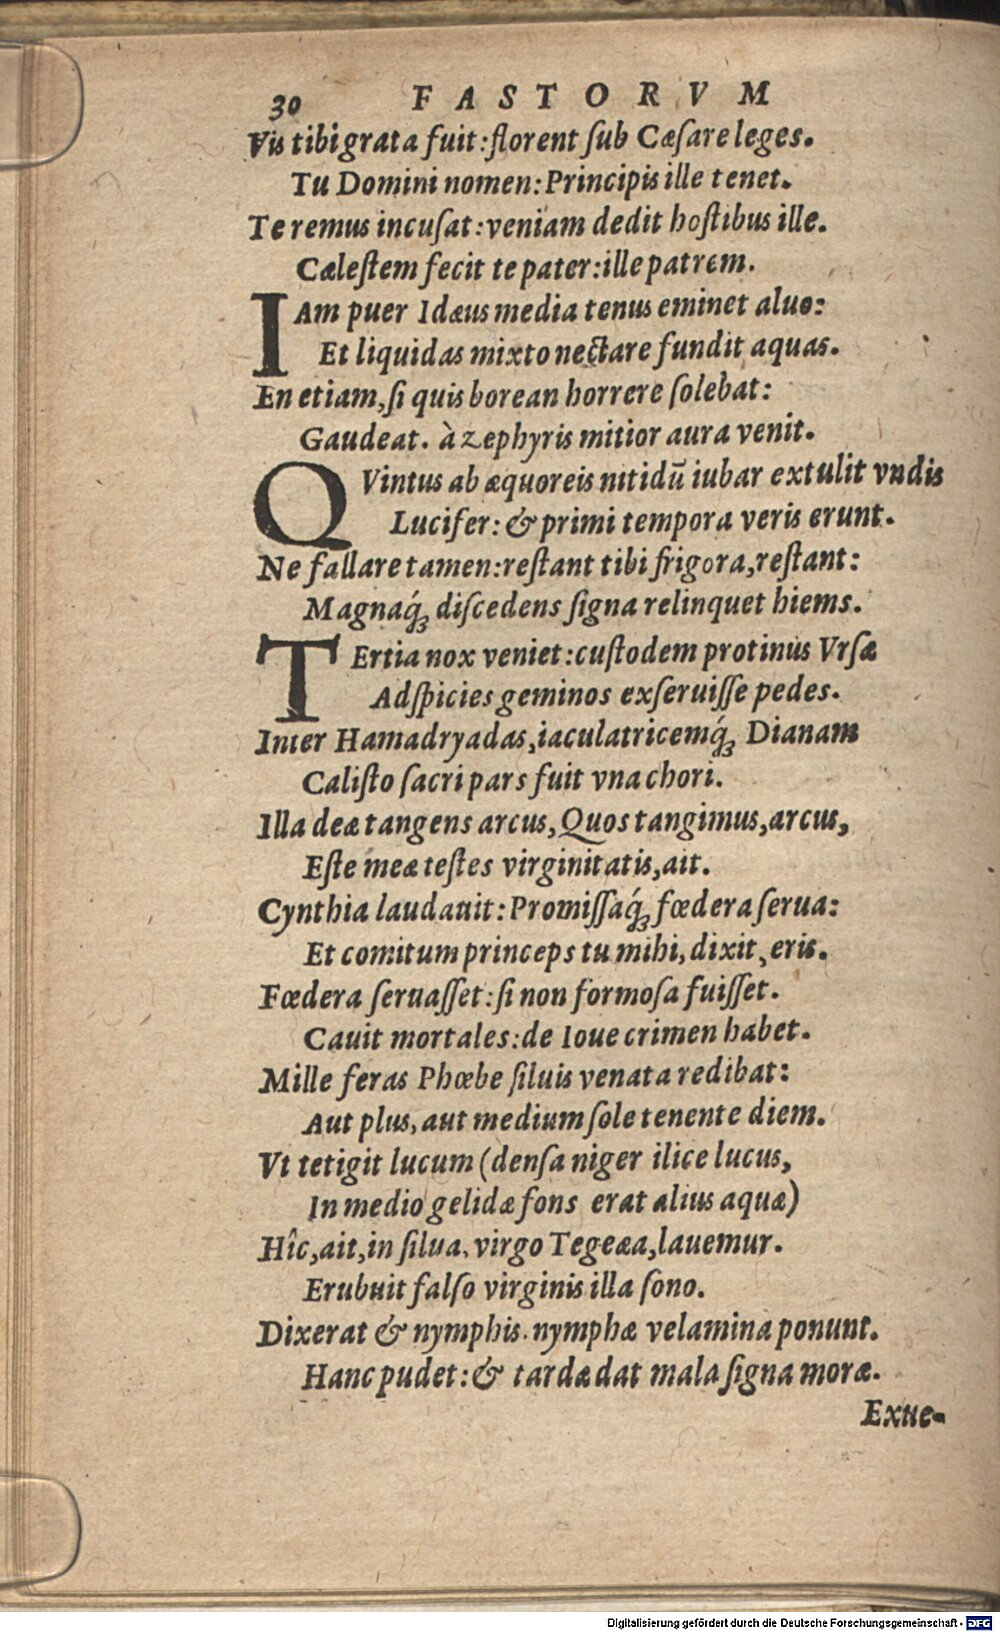 30 FASTORVM
Vis tibi grata fuit: florent ſub Cæſare leges.
Tu Domini nomen: Principis ille tenet.
Te remus incuſat: veniam dedit hoſtibus ille.
Cæleſtem fecit te pater: ille patrem.
IAm puer Idæus media tenus eminet aluo:
Et liquidas mixto nectare fundit aquas.
En etiam, ſi quis borean horrere ſolebat:
Gaudeat. à zephyris mitior aura venit.
QVintus ab æquoreis nitidũ iubar extulit vndis
Lucifer: & primi tempora veris erunt.
Ne fallare tamen: reſtant tibi frigora, reſtant:
Magnaq́ꝫ diſcedens ſigna relinquet hiems.
TErtia nox veniet: cuſtodem protinus Vrſæ
Adſpicies geminos exſeruiſſe pedes.
Inter Hamadryadas, iaculatricemq́ꝫ Dianam
Caliſto ſacri pars fuit vna chori.
Illa deæ tangens arcus, Quos tangimus, arcus,
Eſte meæ teſtes virginitatis, ait.
Cynthia laudauit: Promiſſaq́ꝫ fœdera ſerua:
Et comitum princeps tu mihi, dixit, eris.
Fœdera ſeruaſſet: ſi non formoſa fuiſſet.
Cauit mortales: de Ioue crimen habet.
Mille feras Phœbe ſiluis venata redibat:
Aut plus, aut medium ſole tenente diem.
Vt tetigit lucum (denſa niger ilice lucus,
In medio gelidæ fons erat alius aquæ)
Hîc, ait, in ſilua, virgo Tegeæa, lauemur.
Erubuit falſo virginis illa ſono.
Dixerat & nymphis. nymphæ velamina ponunt.
Hanc pudet: & tardæ dat mala ſigna moræ.
Exue-
Digitalisierung gefördert durch die Deutsche Forschungsgemeinschaft - DFG